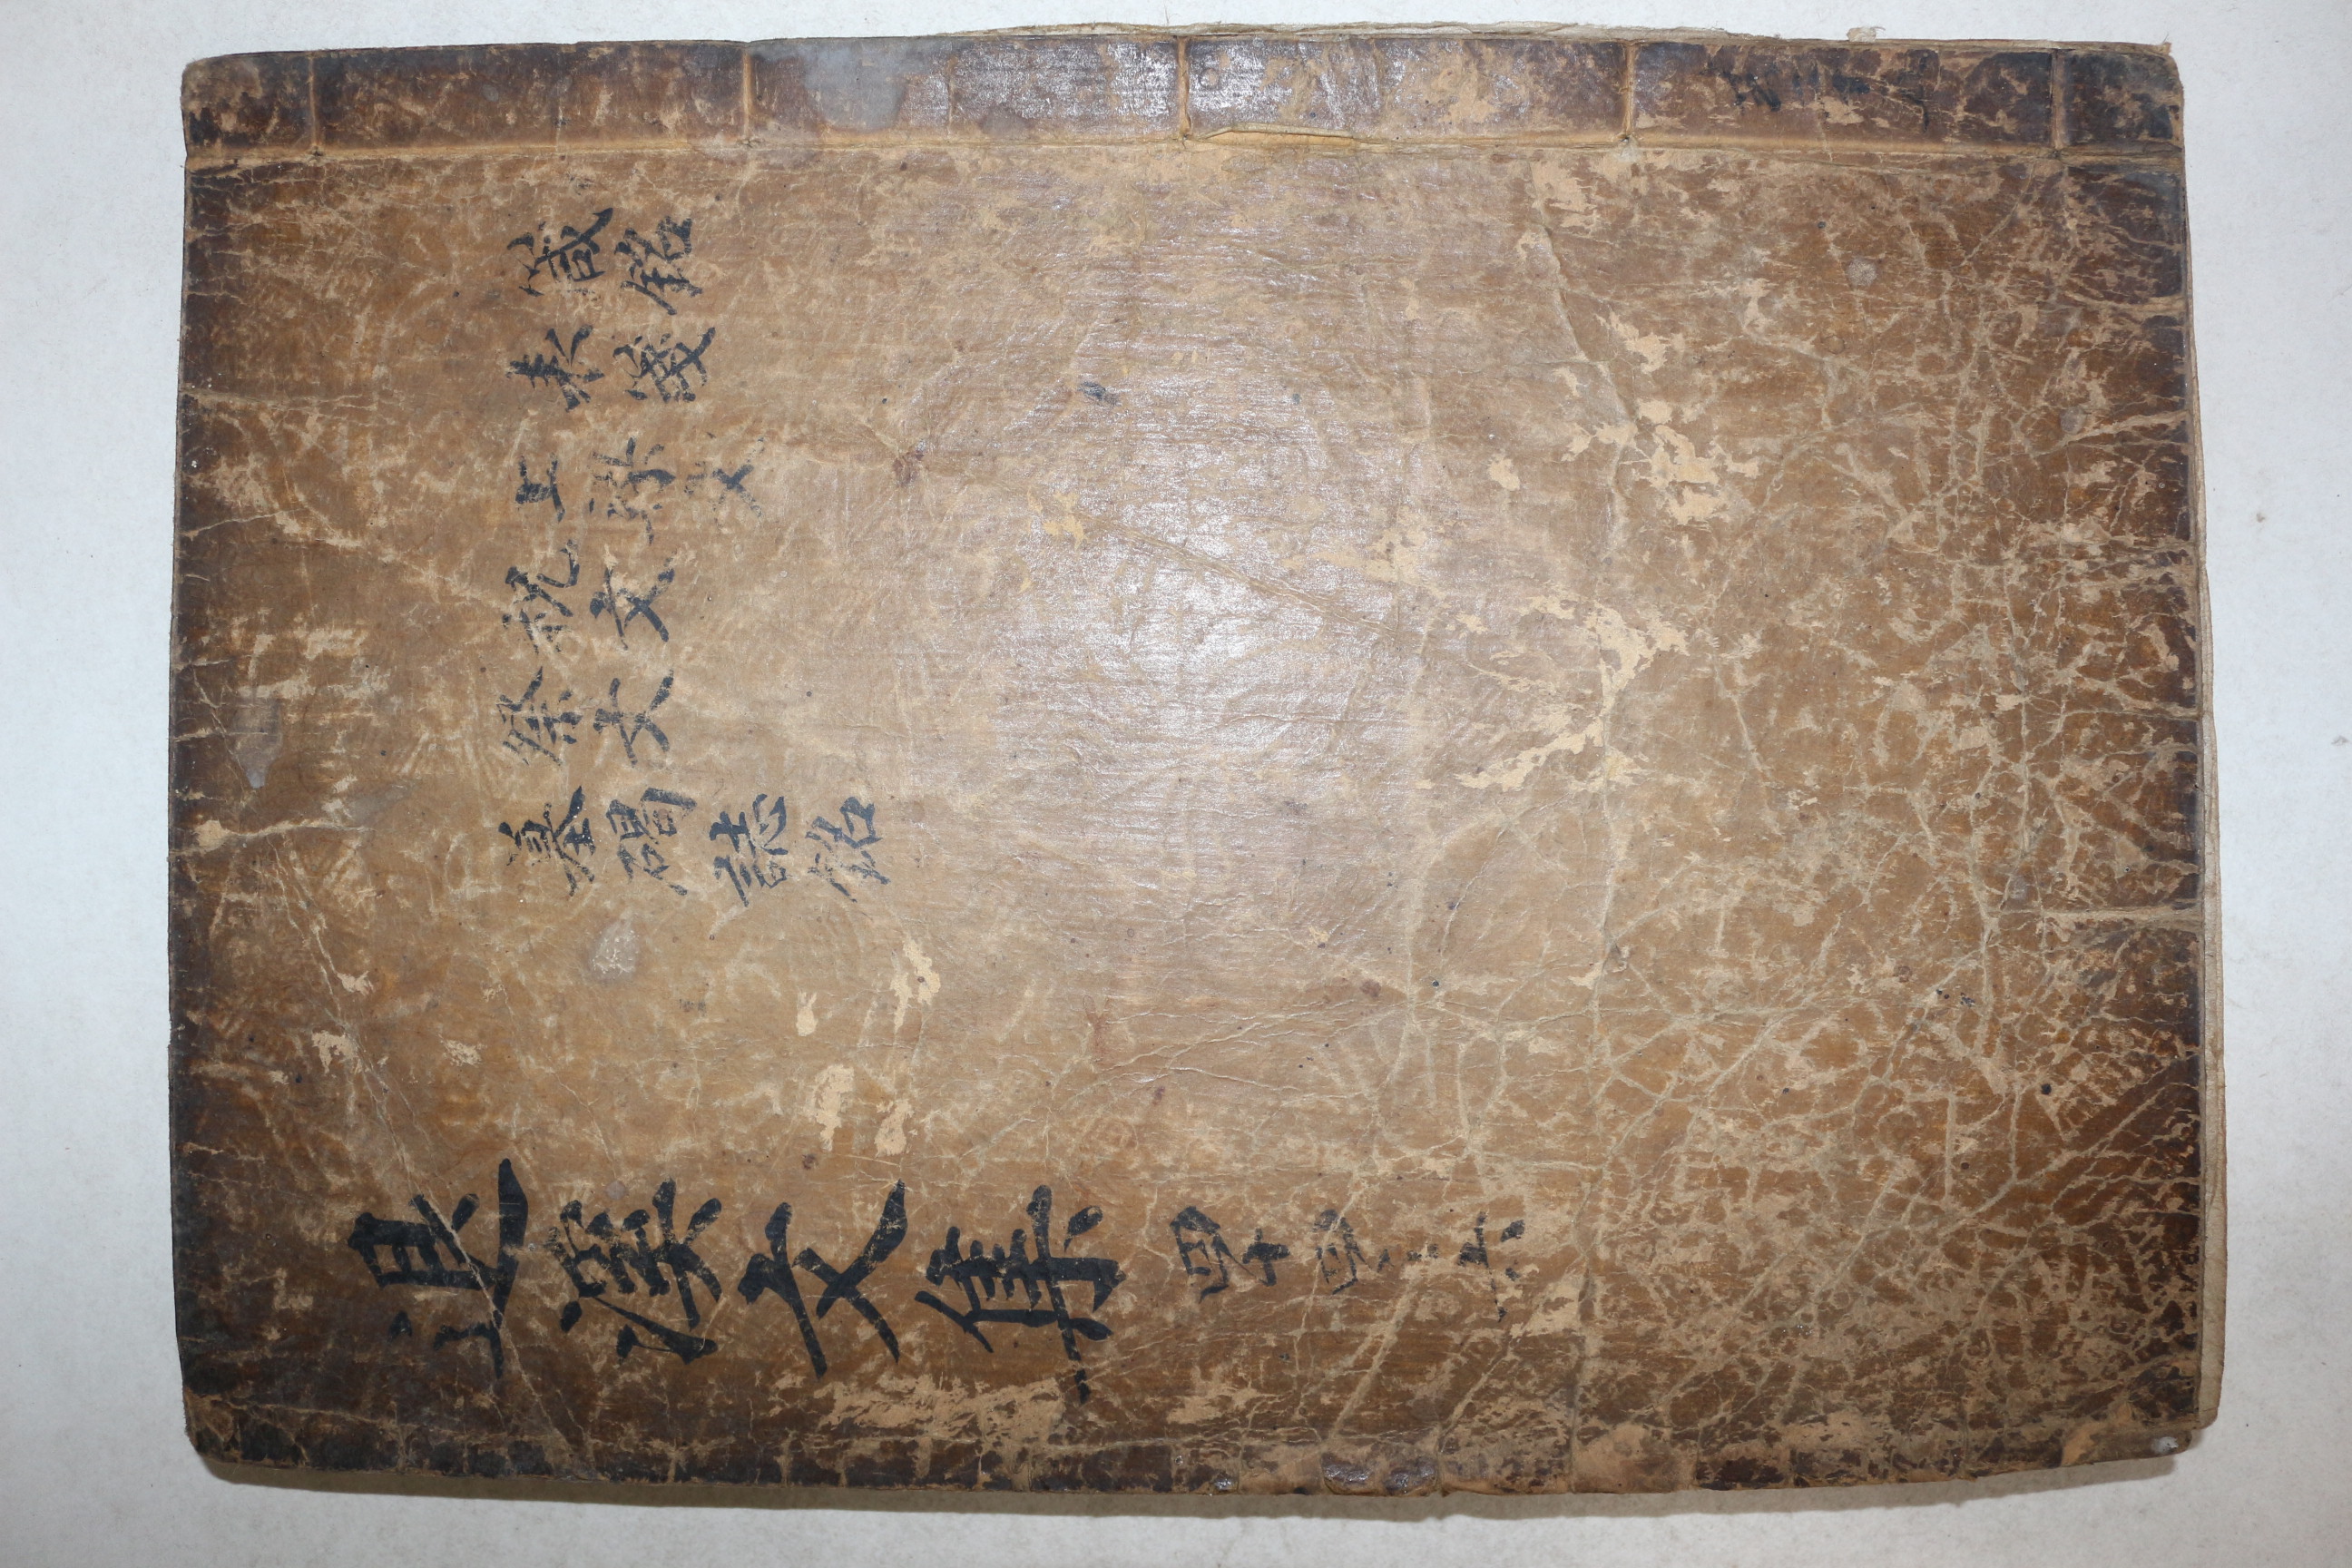 箴銘
表箋
上樑文
祝文
祭文
墓碣誌銘
退溪文集 四十四 六